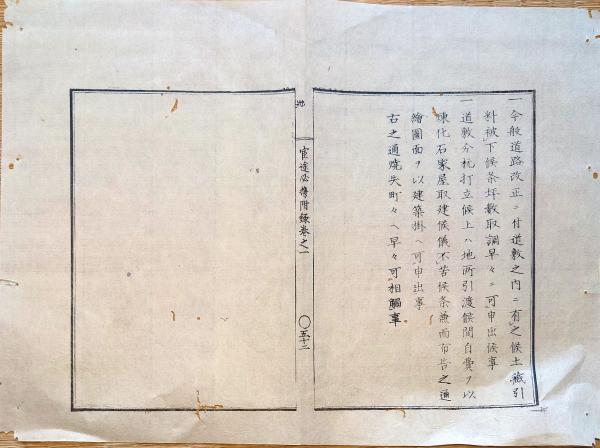 一今般道路改正ニ付道敷之内ニ有之候土藏引
料被下候条坪数取調早々ニ可申出候事
一道敷分杭打立候上ハ地所引渡候間自費ヲ以
煉化石家屋取建候儀不苦候条兼而布告之通
繪圖面ヲ以建築掛ヘ可申出事
右之通焼失町々ヘ早々可相觸事
地
官途必携附録巻之一
〇五十二